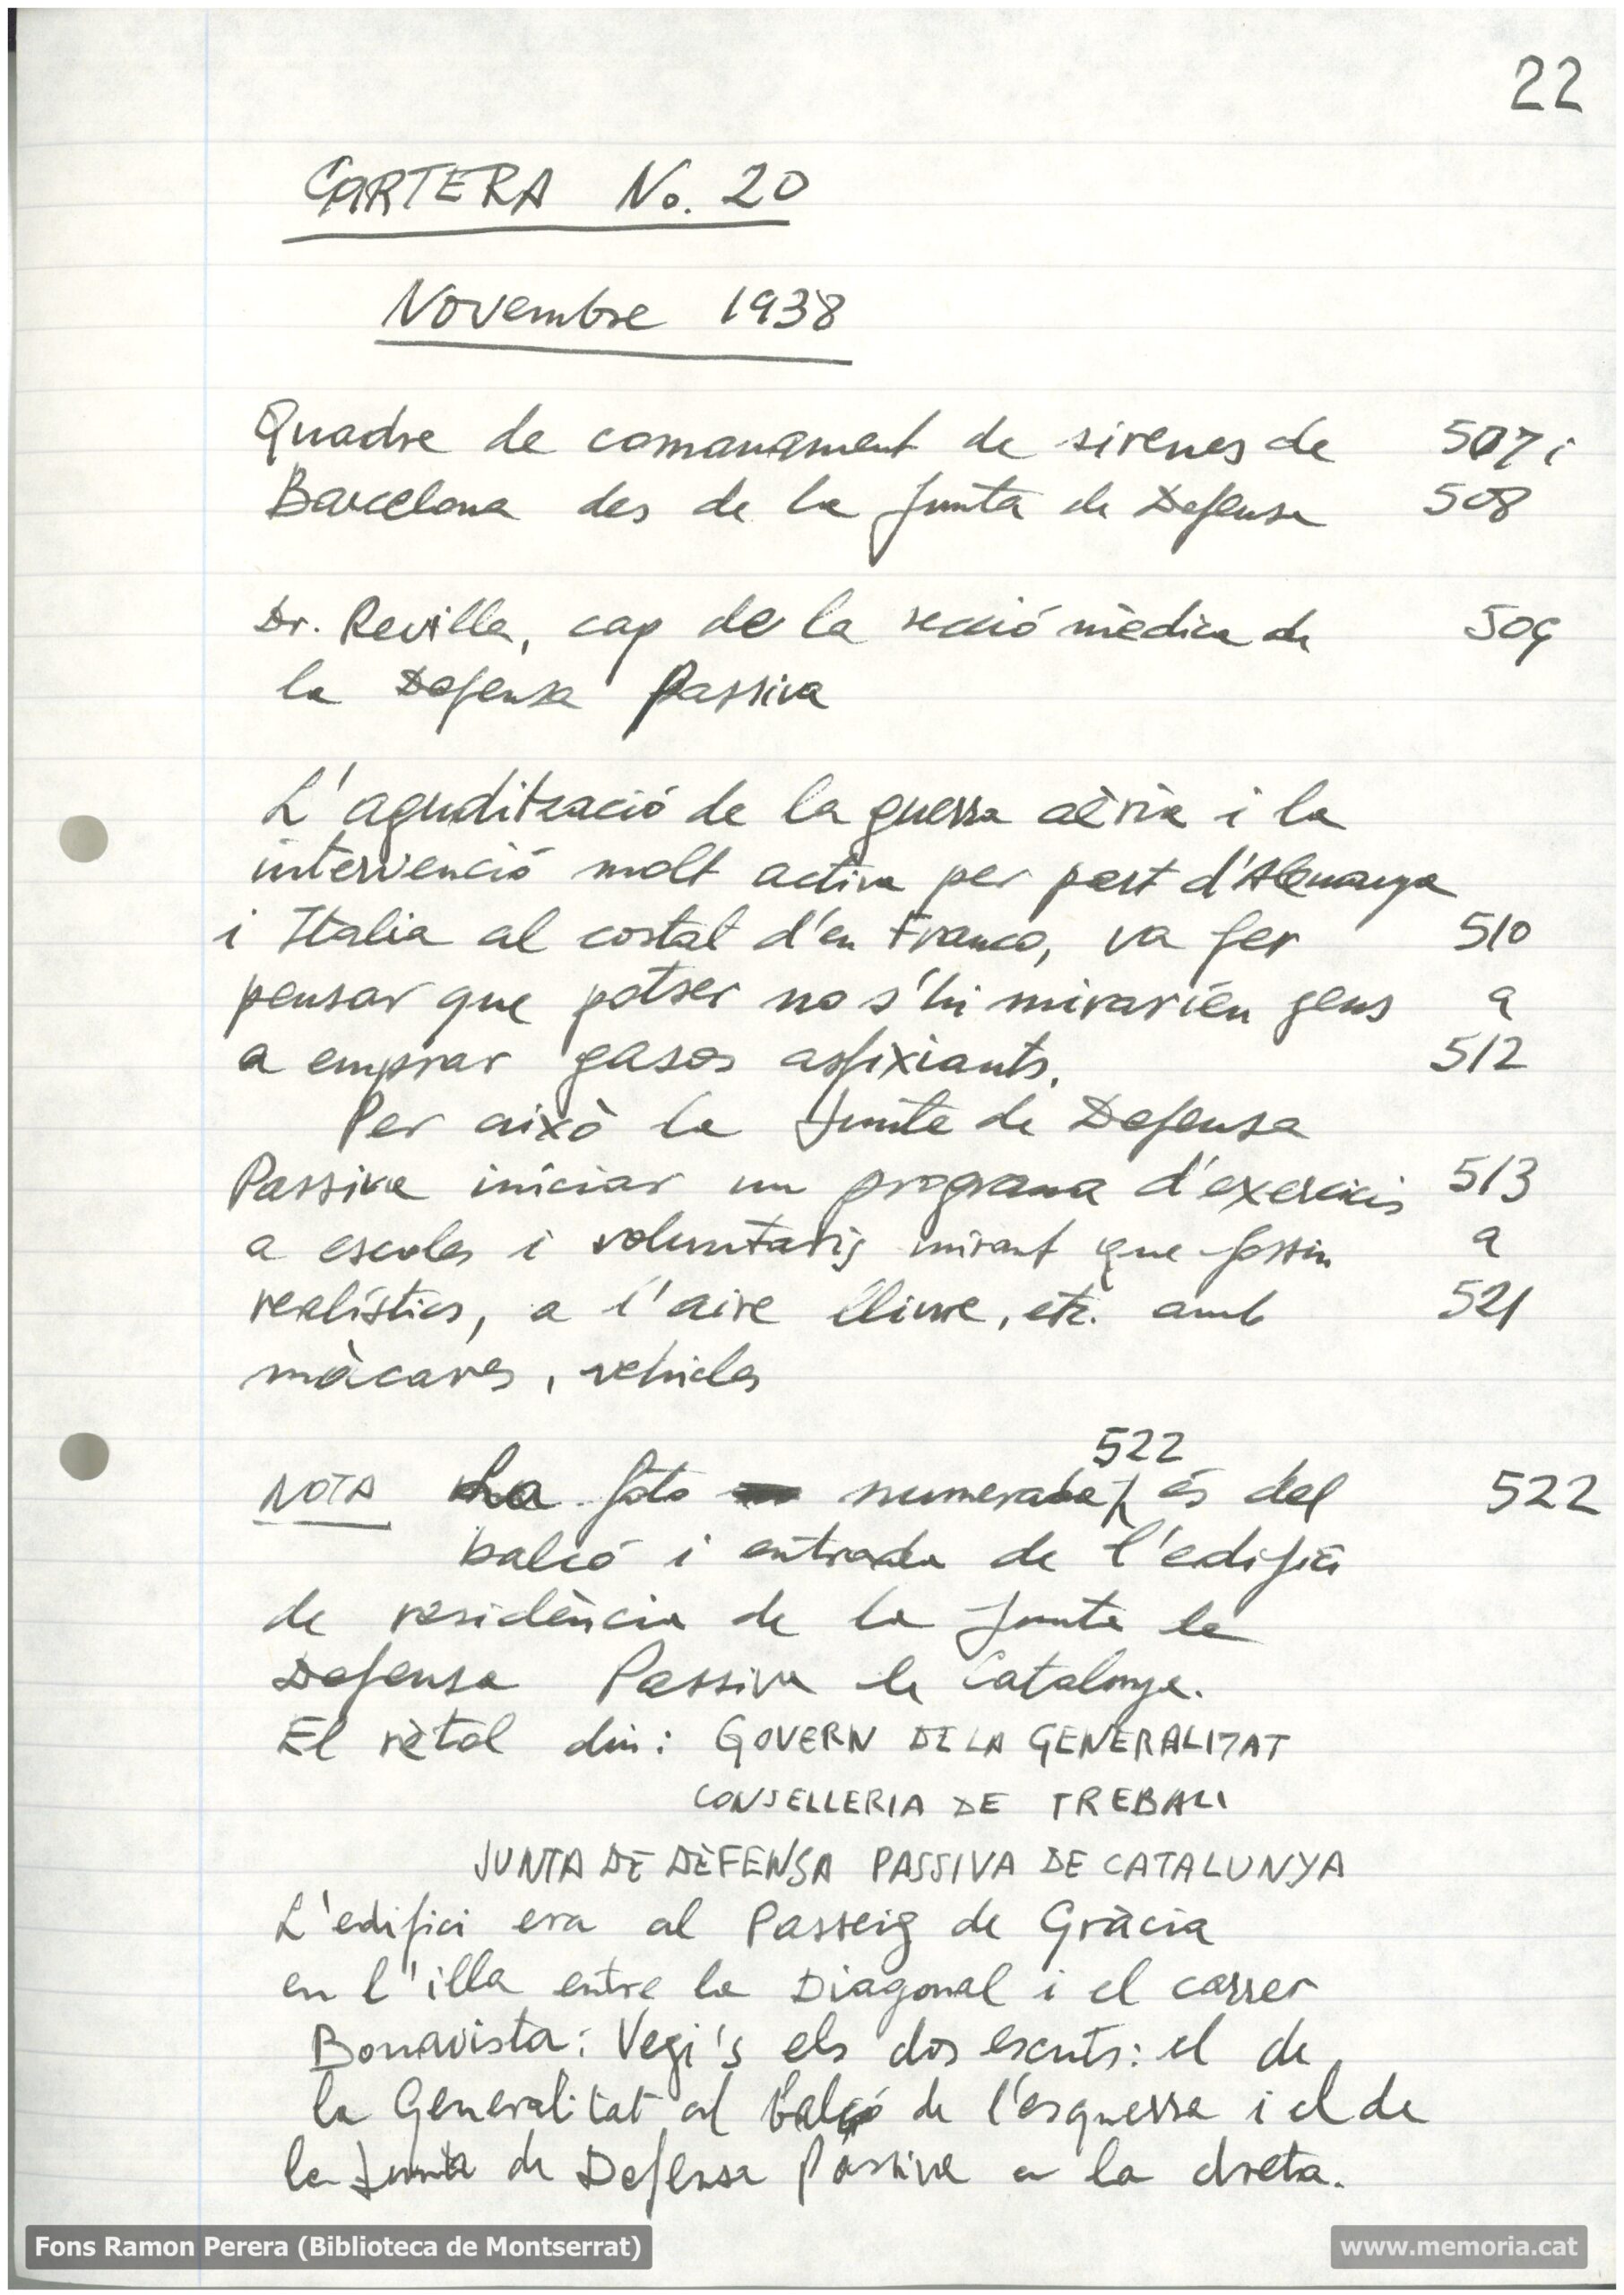 22
CARTERA No. 20
Novembre 1938
Quadre de comanament de sirenes de 507 i
Barcelona des de la Junta de Defensa 508
Dr. Revilla, cap de la secció mèdica de 509
la Defensa Passiva
L'agudització de la guerra aèria i la
intervenció molt activa per part d'Alemanya
i Italia al costat d'en Franco, va fer 510
pensar que potser no s'hi mirarien gens a
a emprar gasos asfixiants. 512
Per això la Junta de Defensa
Passiva iniciar un programa d'exercicis 513
a escoles i voluntaris mirant que fossin a
realístics, a l'aire lliure, etc. amb 521
màcares, vehicles
NOTA La foto numerada 522 és del 522
balcó i entrada de l'edifici
de residència de la Junta de
Defensa Passiva de Catalunya.
El rètol diu: GOVERN DE LA GENERALITAT
CONSELLERIA DE TREBALL
JUNTA DE DÈFENSA PASSIVA DE CATALUNYA
L'edifici era al Passeig de Gràcia
en l'illa entre la Diagonal i el carrer
Bonavista: Vegi's els dos escuts: el de
la Generalitat al balcó de l'esquerra i el de
la Junta de Defensa Passiva a la dreta.
Fons Ramon Perera (Biblioteca de Montserrat)
www.memoria.cat